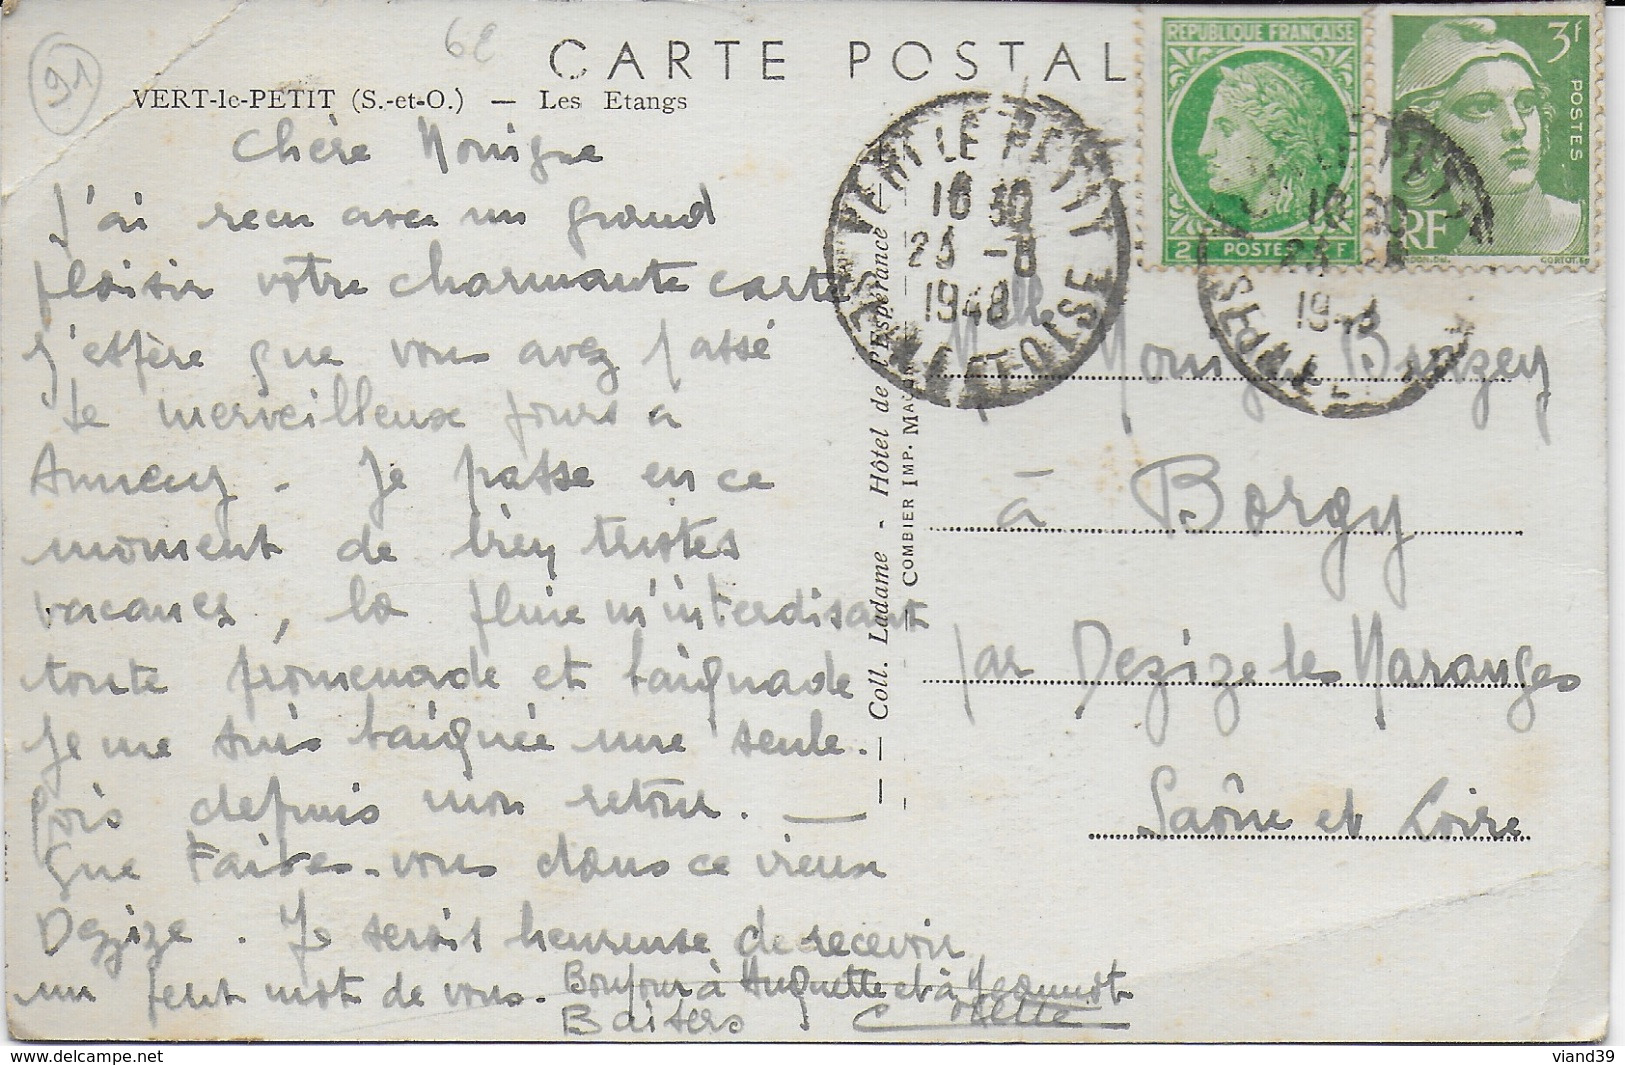 91
6E
CARTE POSTAL
VERT-le-PETIT (S.-et-O.) — Les Etangs
REPUBLIQUE FRANÇAISE
2 F POSTES
3f
POSTES
RF
VERT LE PETIT
SEINE ET OISE
16 30
23 -8
1948
Chère Monique
J'ai reçu avec un grand
plaisir votre charmante carte
J'espère que vous avez passé
de merveilleux jours a
Annecy - Je passe en ce
moment de bien tristes
vacances, la pluie m'interdisant
toute promenade et baignade
Je me suis baignée une seule.
fois depuis mon retour. —
Que Faites-vous dans ce vieux
Dezize. Je serais heureuse de recevoir
un petit mot de vous. Bonjour à Huguette et à Jeannot
Baisers Odette
— — Coll. Ladame - Hôtel de l'Espérance —
COMBIER IMP. MA
Melle Monique
à Borgy
par Dezize les Maranges
Saône et Loire
viand39